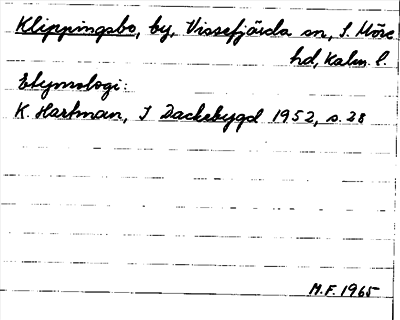 Klippingsbo, by, Vissefjärda sn, S. Möre
hd, Kalm. l.
Etymologi:
K. Hartman, I Dackebygd 1952, s. 28
M.F. 1965